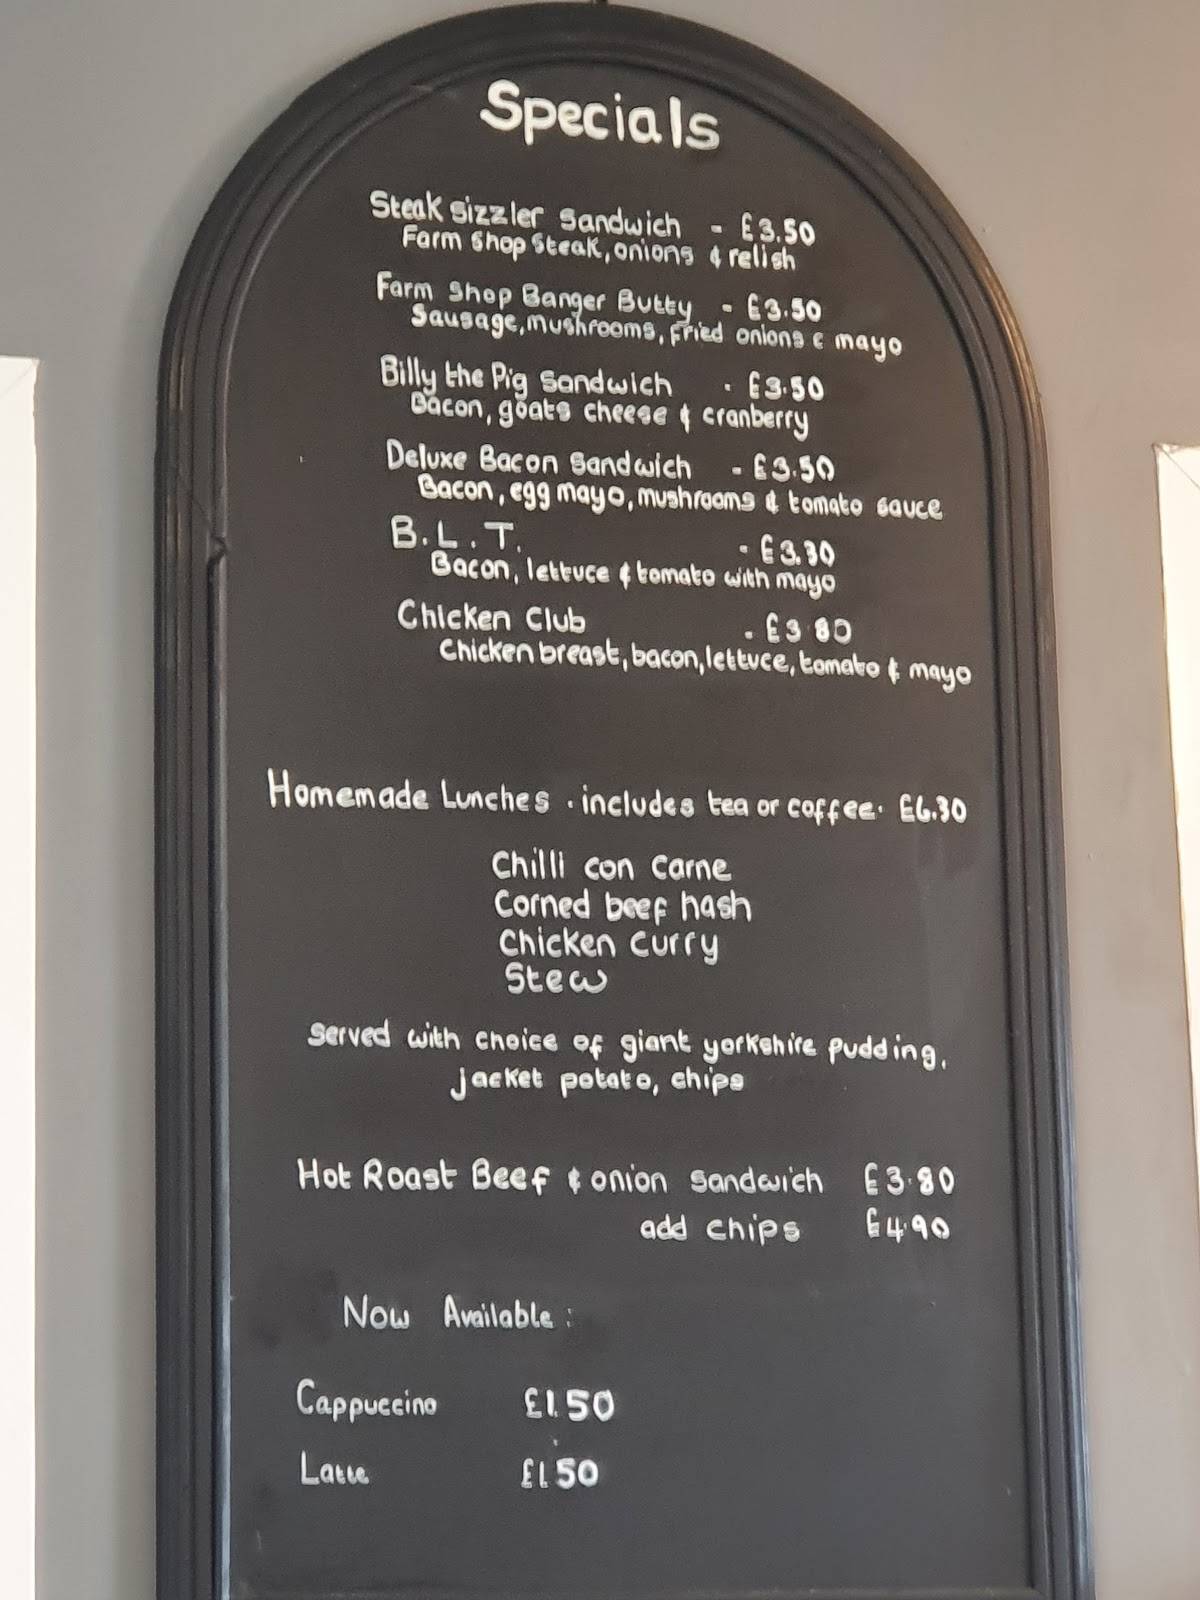 Specials
Steak Sizzler Sandwich - £3.50
Farm Shop Steak, onions & relish
Farm Shop Banger Butty - £3.50
Sausage, mushrooms, Fried onions & mayo
Billy the Pig Sandwich - £3.50
Bacon, goats cheese & cranberry
Deluxe Bacon Sandwich - £3.50
Bacon, egg mayo, mushrooms & tomato sauce
B.L.T. - £3.30
Bacon, lettuce & tomato with mayo
Chicken Club - £3.80
Chicken breast, bacon, lettuce, tomato & mayo
Homemade Lunches . includes tea or coffee. £6.30
Chilli con Carne
Corned beef hash
Chicken Curry
Stew
Served with choice of giant yorkshire pudding,
jacket potato, chips
Hot Roast Beef & onion Sandwich £3.80
add chips £4.90
Now Available :
Cappuccino £1.50
Latte £1.50